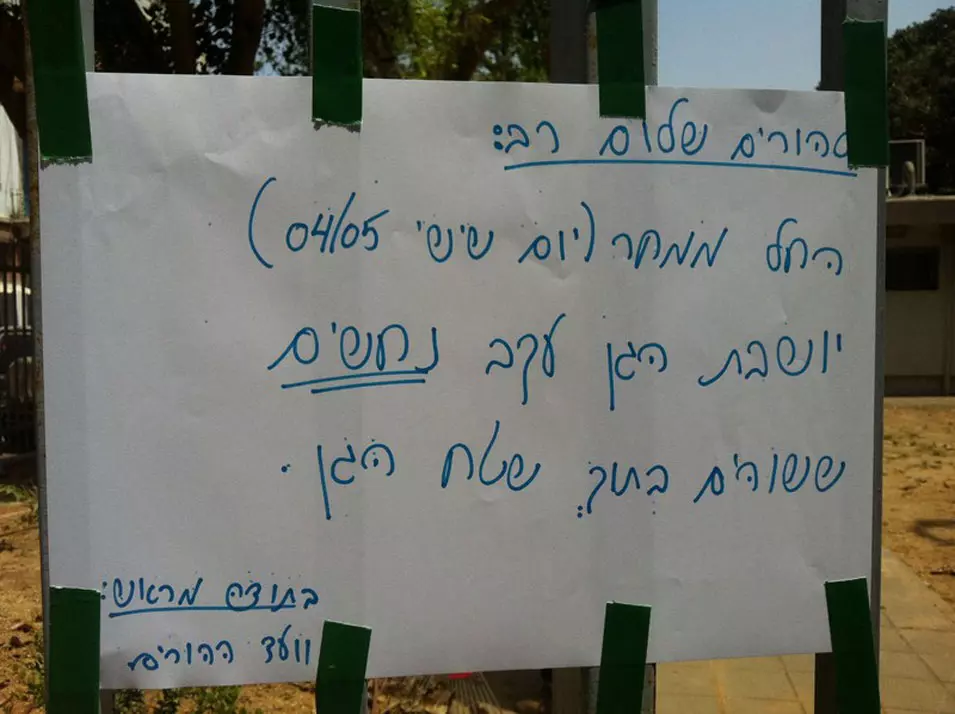 להורים שלום רב:
החל ממחר (יום שישי 04/05)
יושבת הגן עקב נחשים
ששוהים בתוך שטח הגן.
בתודה מראש:
וועד ההורים